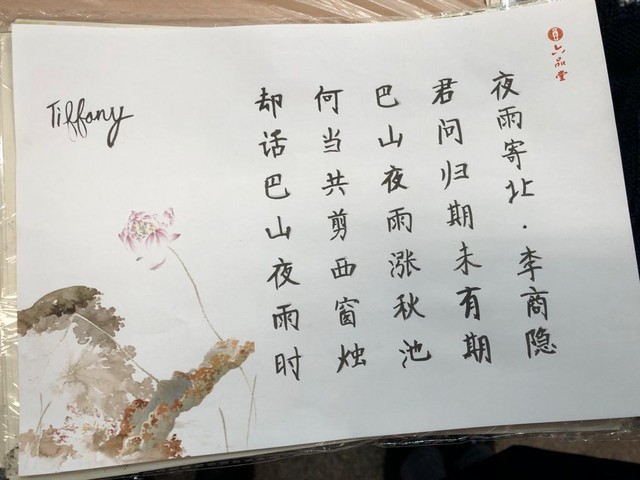 六品堂
夜雨寄北·李商隐
君问归期未有期
巴山夜雨涨秋池
何当共剪西窗烛
却话巴山夜雨时
Tiffany